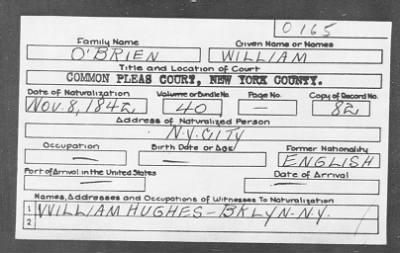 O 165
Family Name Given Name or Names
O'BRIEN WILLIAM
Title and Location of Court
COMMON PLEAS COURT, NEW YORK COUNTY.
Date of Naturalization Volume or Bundle No. Page No. Copy of Record No.
NOV. 8, 1842 40 — 82
Address of Naturalized Person
N.Y. CITY
Occupation Birth Date or Age Former Nationality
— — ENGLISH
Port of Arrival in the United States Date of Arrival
— —
Names, Addresses and Occupations of Witnesses To Naturalization
1 WILLIAM HUGHES - BKLYN. N.Y.
2